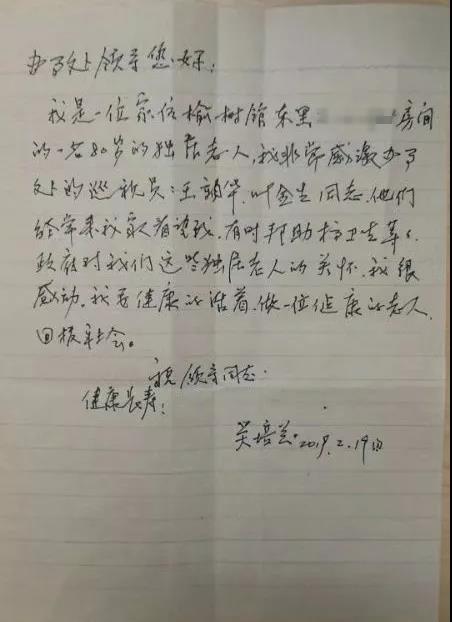 办事处领导您好：
我是一位家住榆树馆东里 房间
的一名80岁的独居老人，我非常感激办事
处的巡视员：王 华、叶金生同志，他们
经常来我家看望我，有时帮助搞卫生等等。
政府对我们这些独居老人的关怀，我很
感动，我要健康的活着，做一位健康的老人，
回报社会。
祝领导同志：
健康长寿！
吴培兰 2019.2.19日